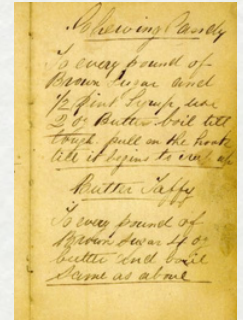 Chewing Candy
To every pound of
Brown Sugar and
1/2 Pint Syrup, use
2 oz Butter boil till
tough. pull on the hook
till it begins to
Butter Taffy
To every pound of
Brown Sugar 4 oz
butter and boil
Same as above